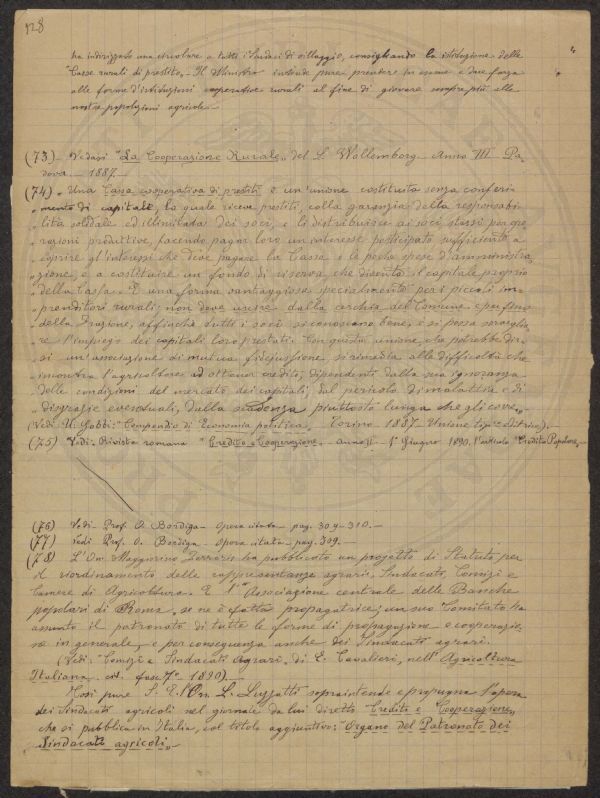 128
ha indirizzato una circolare a tutti i Sindaci di villaggio, consigliando la istituzione delle
"Casse rurali di prestito„. Il Ministro intende pure prendere in esame e dare forza
alle forme d'istituzioni cooperative rurali al fine di giovare sempre più alle
nostre popolazioni agricole.
(73) Vedasi "La Cooperazione Rurale„ del L. Wollemborg. Anno III Pa-
dova 1887.
(74) "Una Cassa cooperativa di prestiti è un'unione costituita senza conferi-
mento di capitale, la quale riceve prestiti, colla garanzia della responsabi-
lità solidale ed illimitata dei soci, e li distribuisce ai soci stessi per ope-
razioni produttive, facendo pagar loro un interesse posticipato sufficiente a
coprire gl'interessi che deve pagare la Cassa e le poche spese d'amministra-
zione, e a costituire un fondo di riserva che diventa il capitale proprio
della Cassa. È una forma vantaggiosa specialmente per i piccoli im-
prenditori rurali; non deve uscire dalla cerchia del Comune e perfino
della Frazione, affinchè tutti i soci si conoscano bene, e si possa sorveglia-
re l'impiego dei capitali loro prestati. Con questa unione, che potrebbe dir-
si un'associazione di mutua fidejussione, si rimedia alla difficoltà che
incontra l'agricoltore ad ottener crediti, dipendenti dalla sua ignoranza
delle condizioni del mercato dei capitali, dal pericolo di malattia e di
disgrazie eventuali, dalla scadenza piuttosto lunga che gli
(Vedi U. Gobbi: "Compendio di Economia politica„ Torino 1887 Unione Tip. Editrice).
(75) Vedi: Rivista romana "Credito e Cooperazione„ anno II 1° Giugno 1890. l'articolo "Credito Popolare„
(76) Vedi Prof. O. Bordiga Opera citata pag. 309-310.
(77) Vedi Prof. O. Bordiga Opera citata pag. 309.
(78) L'On. Maggiorino Ferraris ha pubblicato un progetto di Statuto per
il riordinamento delle rappresentanze agrarie, Sindacati, Comizi e
Camere di Agricoltura. E l'"Associazione centrale delle Banche
popolari di Roma„ se ne è fatta propagatrice; un suo Comitato ha
assunto il patronato di tutte le forme di propagazione e cooperazio-
ne in generale, e per conseguenza anche dei Sindacati agrari.
(Vedi "Comizi e Sindacati Agrari„ di E. Cavalieri, nell'Agricoltura
Italiana cit. fasc. 1890).
Così pure S. E. l'On. L. Luzzatti sopraintende e propugna l'opera
dei Sindacati agricoli nel giornale da lui diretto Credito e Cooperazione,
che si pubblica in Italia, col titolo aggiuntivo: "Organo del Patronato dei
Sindacati agricoli„